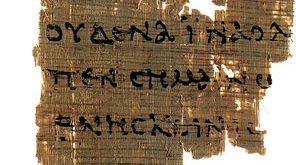 ΟΥΔΕΝΑΪΝΑΟΛ
ΠΕΝϹΗΜΑΙΝΩ
ΘΝΗϹΚΕΙΝΙϹ